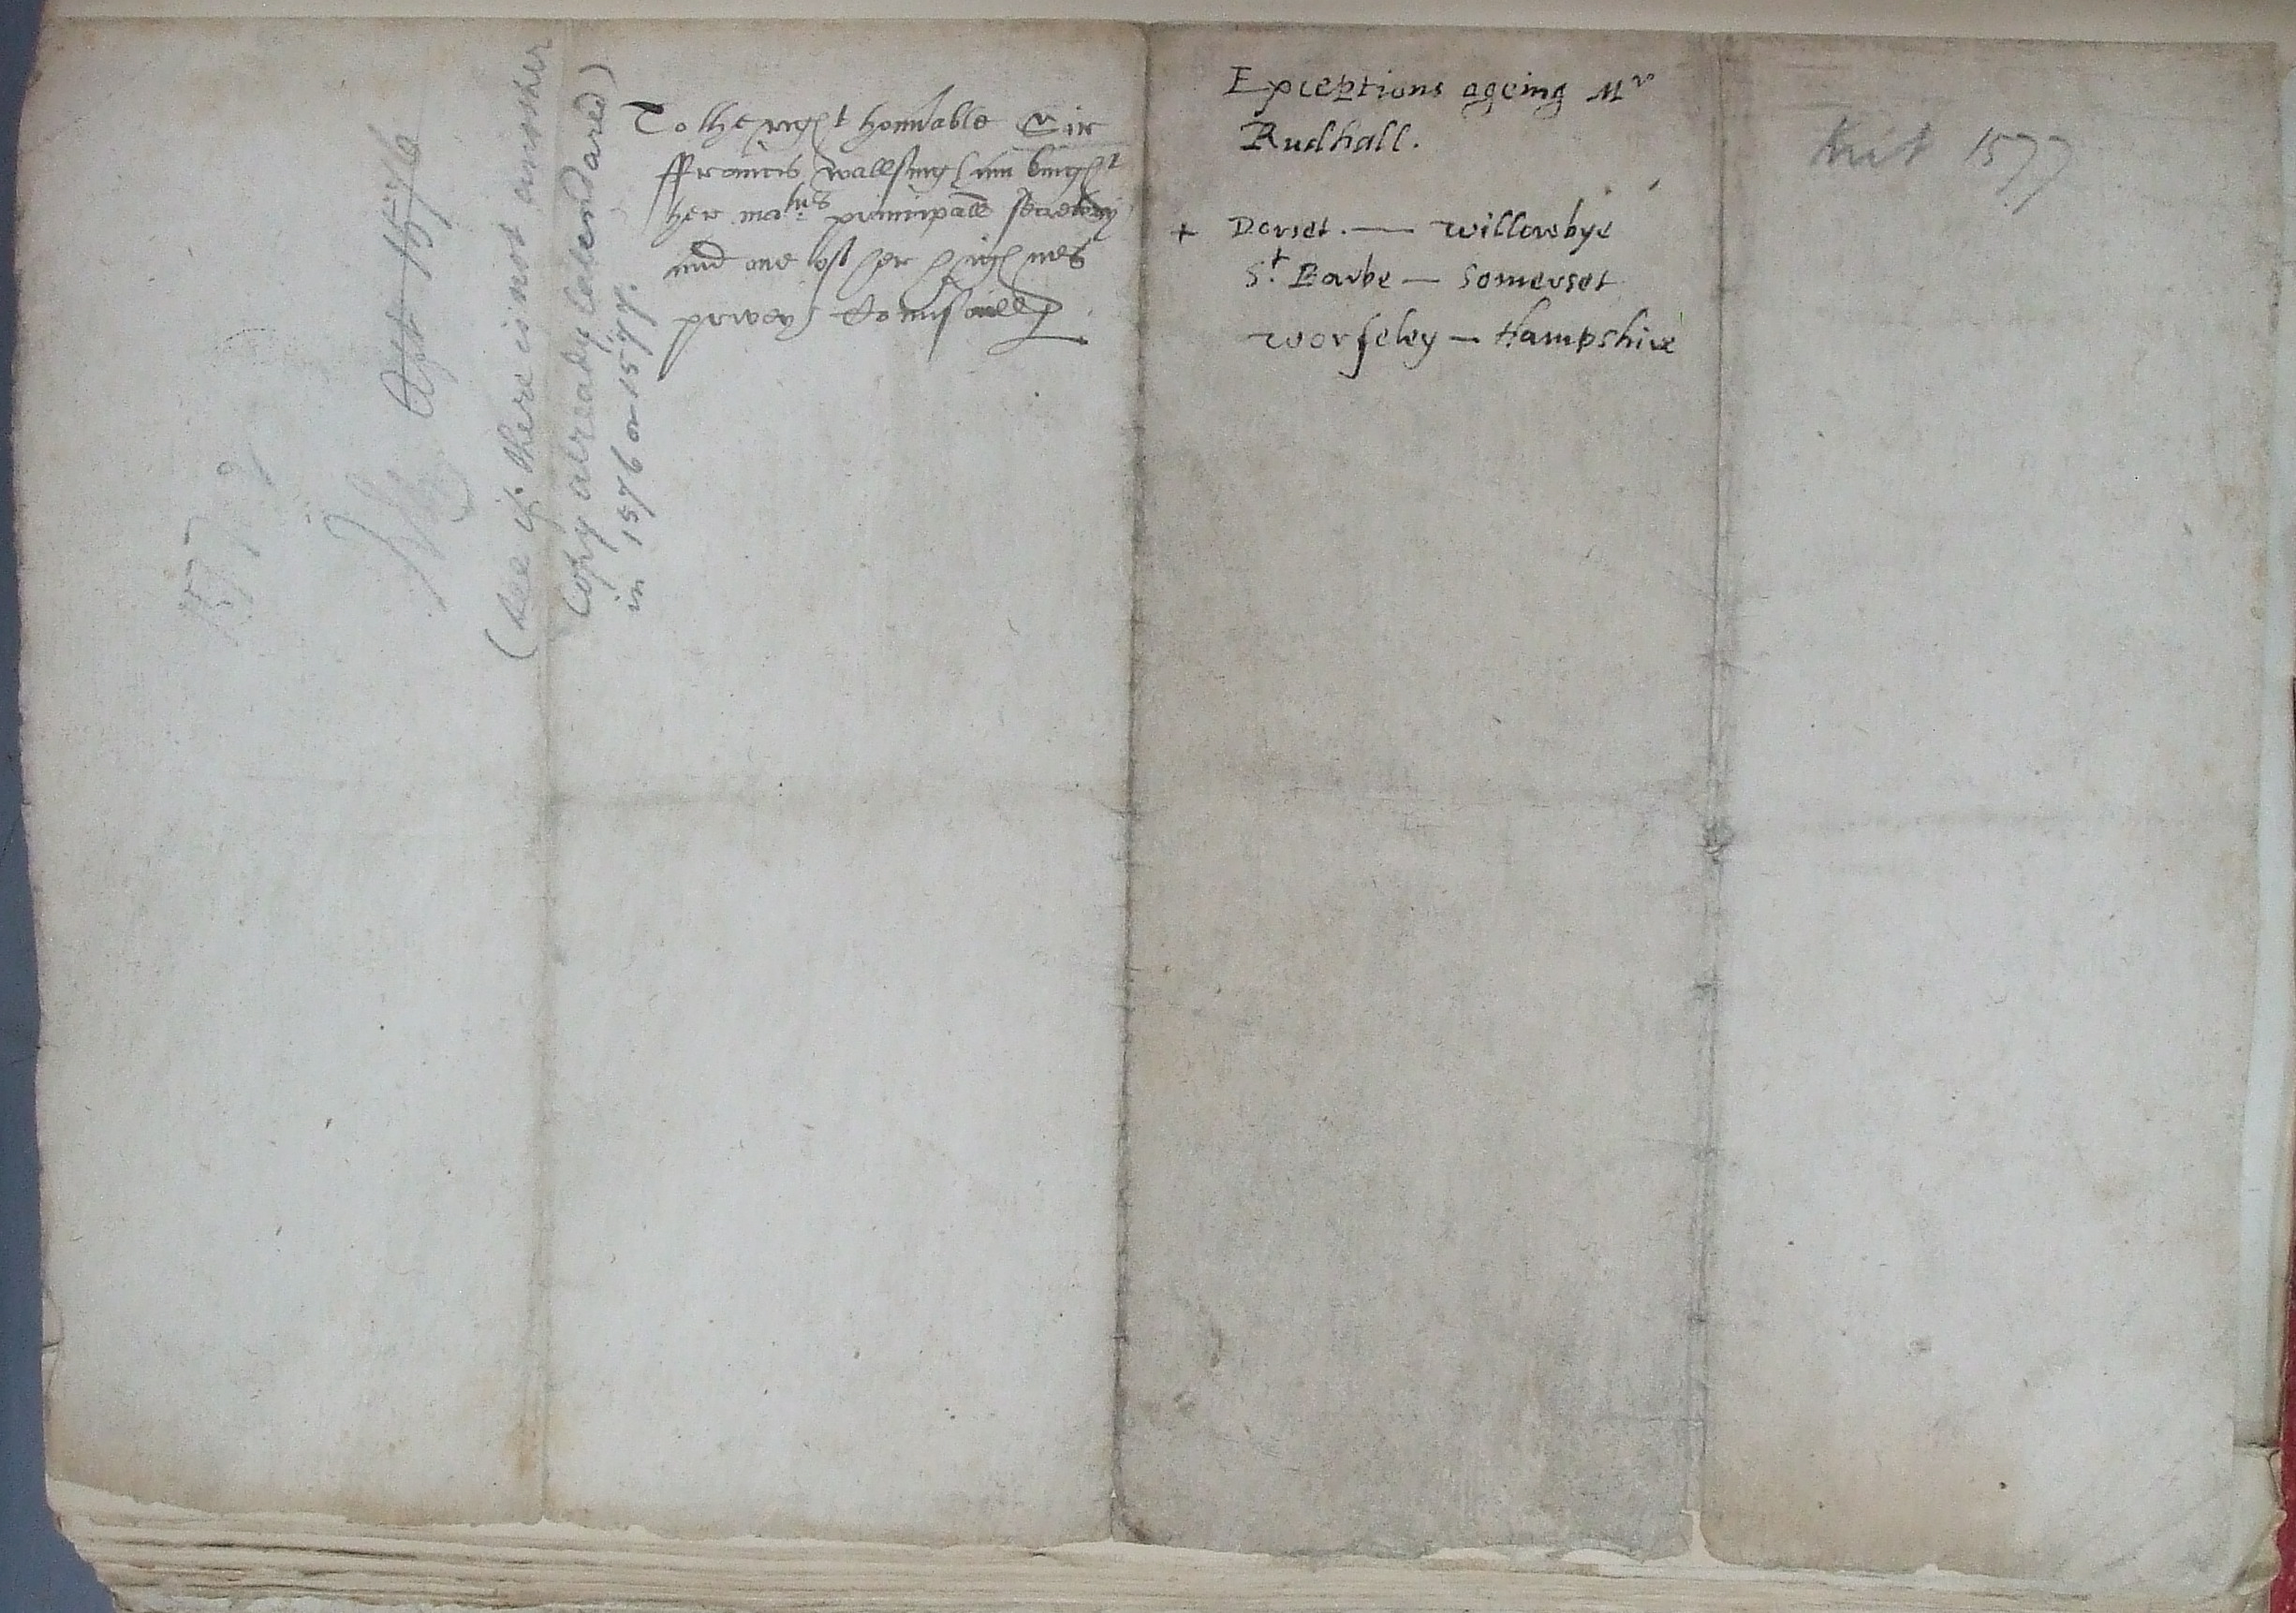 Apr 1576
(See if there is not another
Copy already Calendared)
in 1576 or 1577.
To the right honnable Sir
ffrauncis wallsingham knight
her ma.ties principall secretory
and one of her highnes
privey Counsaille
Exceptions ageing Mr
Rudhall.
+ Dorset. — willowbye
St. Barbe — Somerset
worseley — Hampshire
1577